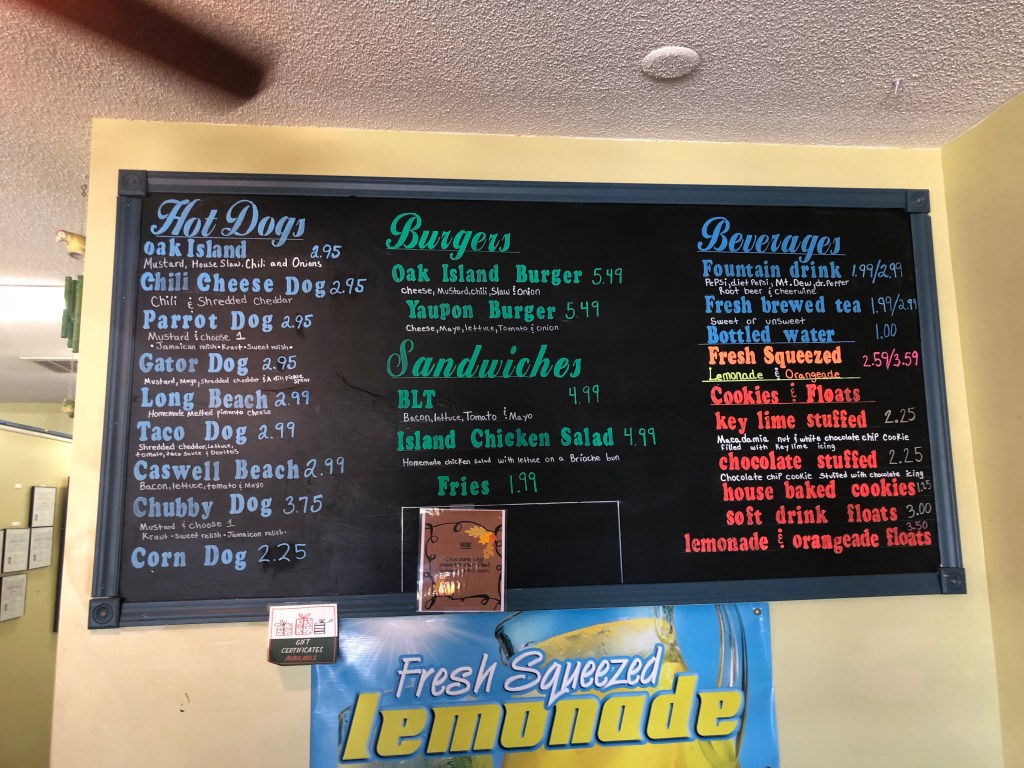 Hot Dogs
oak Island 2.95
Mustard, House Slaw, Chili and Onions
Chili Cheese Dog 2.95
Chili & Shredded Cheddar
Parrot Dog 2.95
Mustard & choose 1
• Jamaican relish • Kraut • Sweet relish •
Gator Dog 2.95
Mustard, Mayo, Shredded cheddar & A dill pickle spear
Long Beach 2.99
Homemade Melted pimento cheese
Taco Dog 2.99
Shredded cheddar, Lettuce,
tomato, taco sauce & Doritos
Caswell Beach 2.99
Bacon, lettuce, tomato & Mayo
Chubby Dog 3.75
Mustard & choose 1
Kraut • sweet relish • Jamaican relish •
Corn Dog 2.25
Burgers
Oak Island Burger 5.49
Cheese, Mustard, chili, Slaw & onion
Yaupon Burger 5.49
Cheese, Mayo, lettuce, Tomato & onion
Sandwiches
BLT 4.99
Bacon, lettuce, Tomato & Mayo
Island Chicken Salad 4.99
Homemade chicken salad with lettuce on a Brioche bun
Fries 1.99
Beverages
Fountain drink 1.99/2.99
Pepsi, diet Pepsi, Mt. Dew, dr. Pepper
Root beer & Cheerwine
Fresh brewed tea 1.99/2.99
Sweet or unSweet
Bottled water 1.00
Fresh Squeezed 2.59/3.59
Lemonade & Orangeade
Cookies & Floats
key lime stuffed 2.25
Macadamia nut & white chocolate chip cookie
filled with Key lime icing
chocolate stuffed 2.25
Chocolate chip cookie Stuffed with chocolate icing
house baked cookies 1.25
soft drink floats 3.00
3.50
lemonade & orangeade floats
GIFT
CERTIFICATES
AVAILABLE
Fresh Squeezed
lemonade